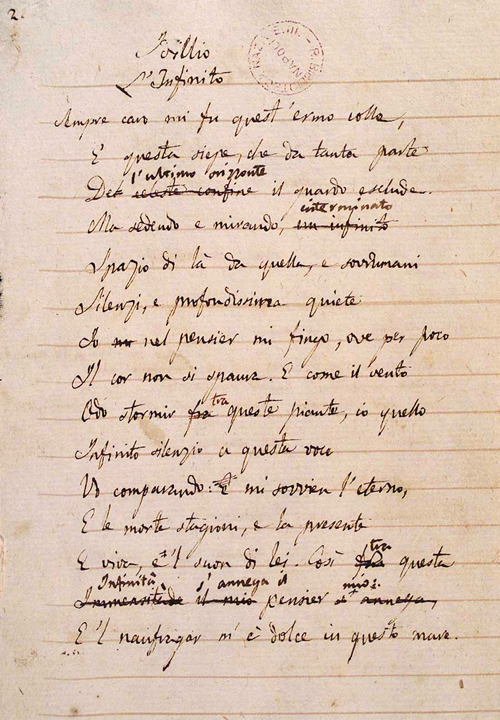 2.
Idillio
L'Infinito
Sempre caro mi fu quest'ermo colle,
E questa siepe, che da tanta parte
l'ultimo orizzonte
Del celeste confine il guardo esclude.
interminato
Ma sedendo e mirando, un infinito
Spazio di là da quella, e sovrumani
Silenzi, e profondissima quiete
Io nel pensier mi fingo, ove per poco
Il cor non si spaura. E come il vento
tra
Odo stormir fra queste piante, io quello
Infinito silenzio a questa voce
Vo comparando: E mi sovvien l'eterno,
E le morte stagioni, e la presente
E viva, e 'l suon di lei. Così
tra
fra questa
Infinità s'annega il mio:
Immensitade il mio pensier s'annega,
E 'l naufragar m'è dolce in questo mare.